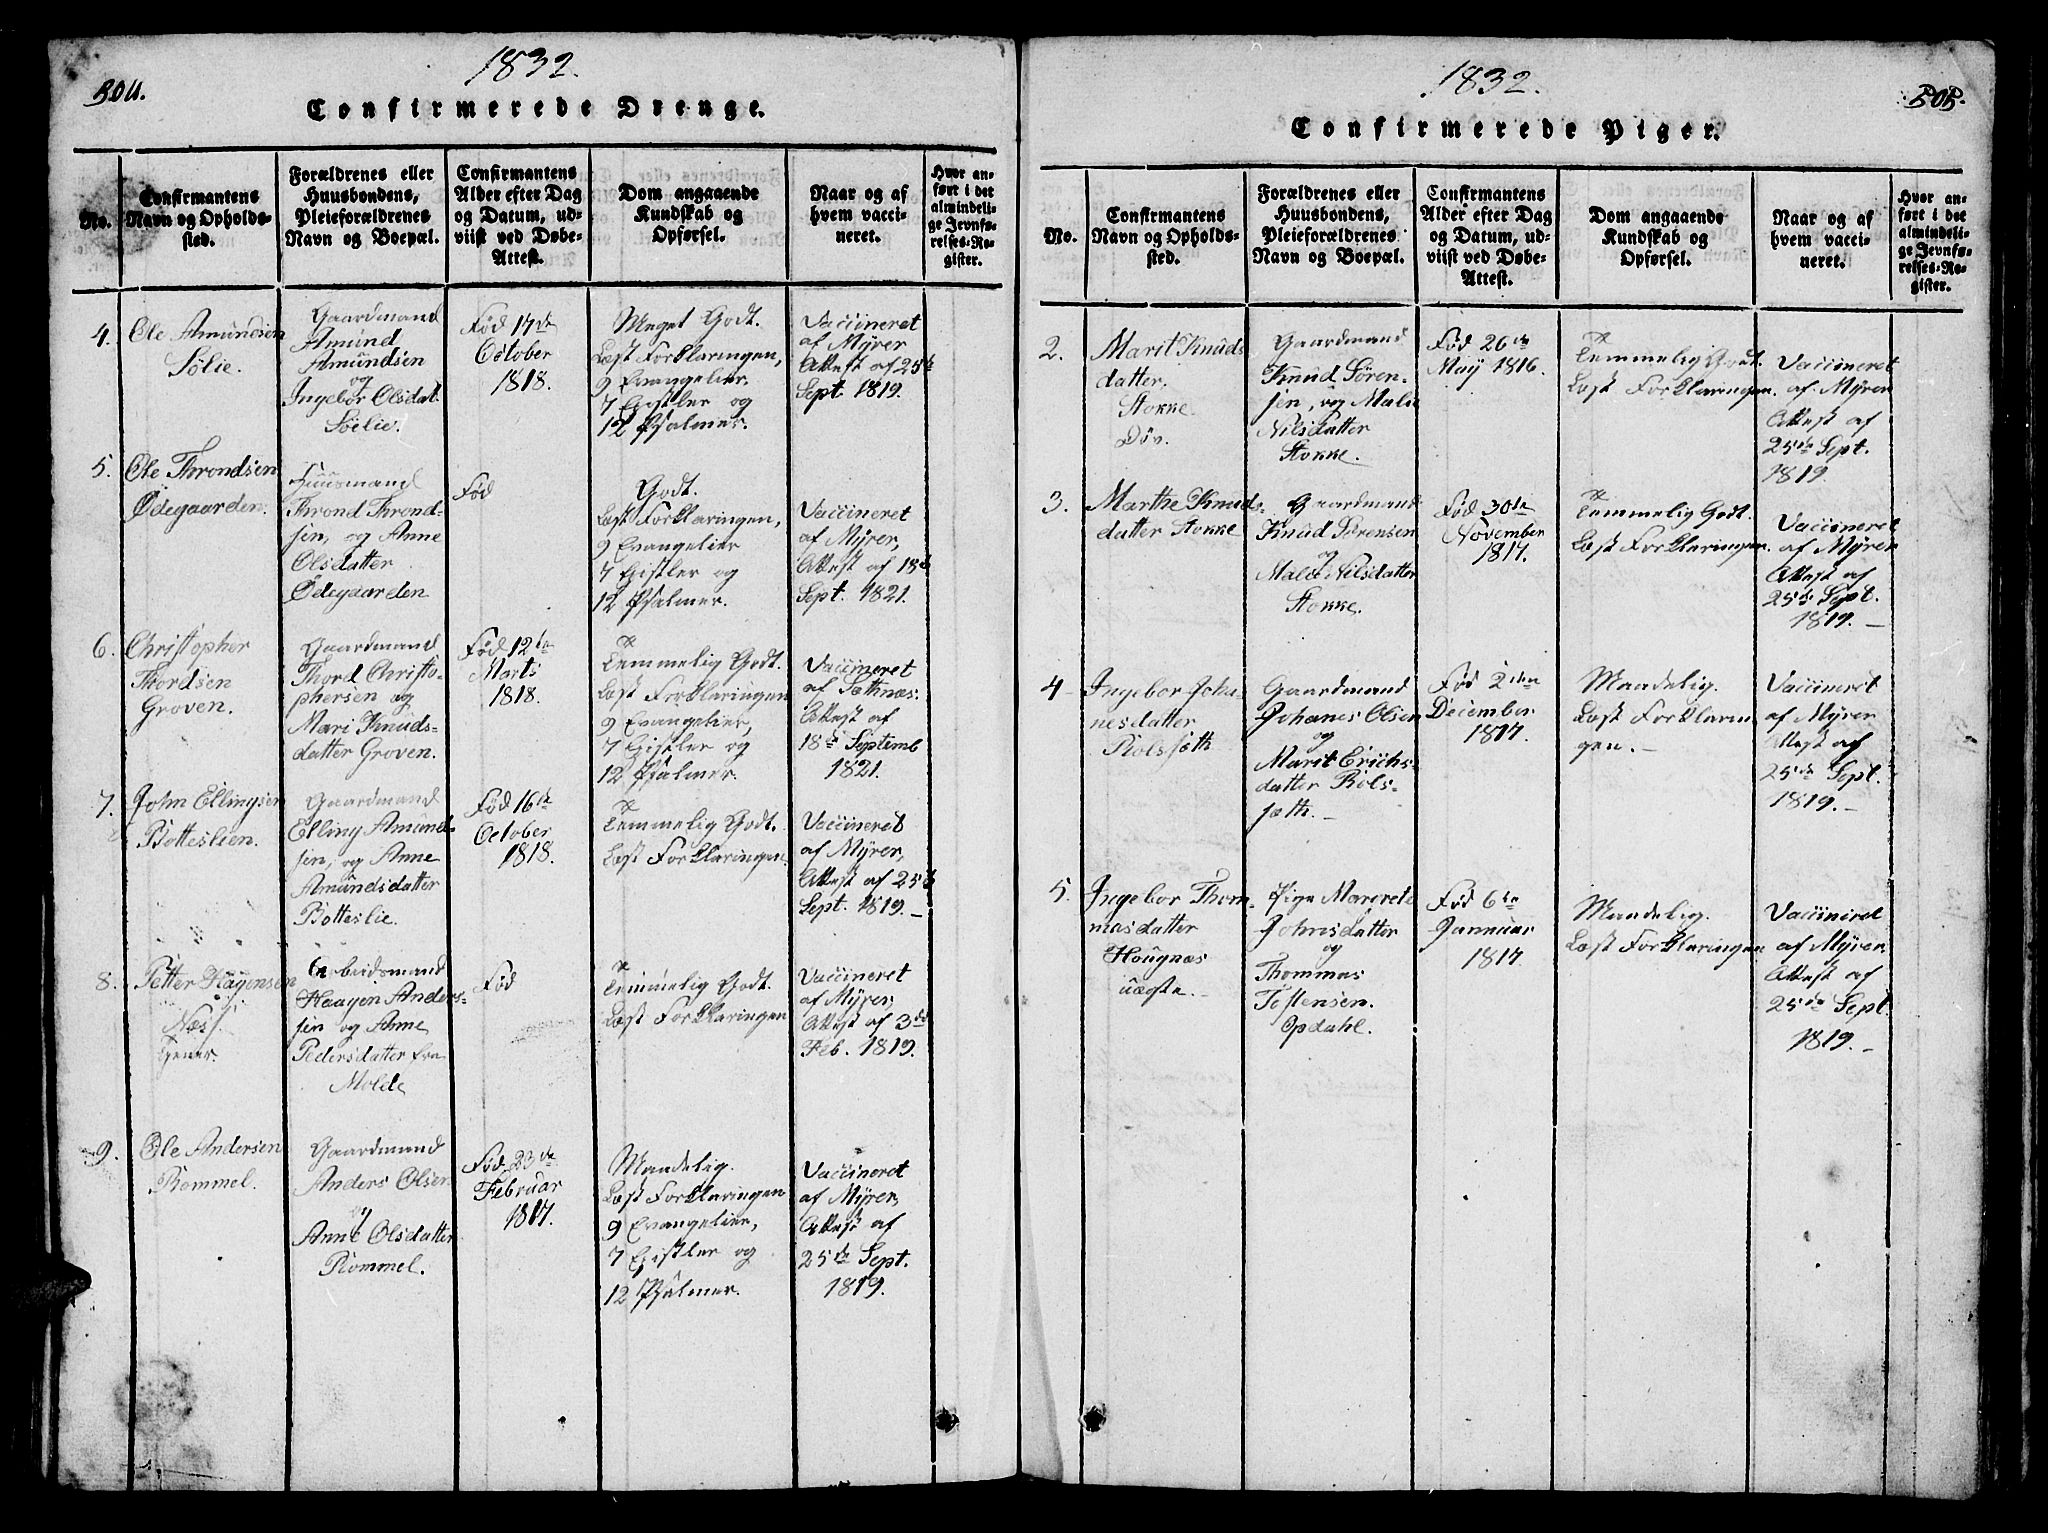 304.
1832.
Confirmerede Drenge.
No.
Confirmantens
Navn og Opholds-
sted.
Forældrenes eller
Huusbondens,
Pleieforældrenes
Navn og Boepæl.
Confirmantens
Alder efter Dag
og Datum, ud-
viist ved Døbe-
Attest.
Dom angaaende
Kundskab og
Opførsel.
Naar og af
hvem vacci-
neret.
Hvor an-
ført i det
almindeli-
ge Jevnfø-
relses-Re-
gister.
4.
Ole Amundsen
Sølie.
Gaardmand
Amund
Amundsen
og
Ingebor Olsdat
Søelie.
Fød 17de
October
1818.
Meget Godt.
Læst Forklaringen,
9 Evangelier
7 Epistler og
12 Psalmer.
Vaccineret
af Myrer
Attest af 25de
Sept. 1819.
5.
Ole Throndsen
Ødegaarden.
Huusmand
Thrond Thrond-
sen, og Anne
Olsdatter
Ødegaarden
Fød
Godt.
Læst Forklaringen,
9 Evangelier
7 Epistler og
12 Psalmer.
Vaccineret
af Myrer,
Attest af 18de
Sept. 1821.
6.
Christopher
Thordsen
Groven.
Gaardmand
Thord Christo-
phersen og
Mari Knuds-
datter Groven.
Fød 12te
Marts
1818.
Temmelig Godt.
Læst Forklaringen
9 Evangelier,
7 Epistler og
12 Psalmer.
Vaccineret
af Sothnæs:
Attest af
18de Septemb
1821.
7.
John Ellingsen
Botteslien.
Gaardmand
Elling Amund-
sen, og Anne
Amundsdatter
Botteslie.
Fød 16de
October
1818.
Temmelig Godt.
Læst Forklaringen.
Vaccineret
af Myrer,
Attest af 25de
Sept. 1819.-
8.
Petter Hagensen
Næss.
Arbeidsmand
Haagen Anders-
sen og Anne
Pedersdatter fra
Molde
Fød
Temmelig Godt.
Læst Forklaringen
Vaccineret
af Myrer,
Attest af 3de
Feb. 1819.
9.
Ole Andersen
Rommel.
Gaardmand
Anders Olsen
og
Anne Olsdatter
Rommel.
Fød 23de
Februar
1817.
Maadelig.
Læst Forklaringen
9 Evangelier,
7 Epistler og
12 Psalmer.
Vaccineret
af Myrer,
Attest af
25de Sept.
1819.
1832.
505.
Confirmerede Piger.
No.
Confirmantens
Navn og Opholds-
sted.
Forældrenes eller
Huusbondens,
Pleieforældrenes
Navn og Boepæl.
Confirmantens
Alder efter Dag
og Datum, ud-
viist ved Døbe-
Attest.
Dom angaaende
Kundskab og
Opførsel.
Naar og af
hvem vacci-
neret.
Hvor an-
ført i det
almindeli-
ge Jevnfø-
relses-Re-
gister.
2.
Marit Knuds
datter.
Stokke
Døv.
Gaardmand
Knud Søren-
sen, og Malie
Nilsdatter
Stokke.
Fød 26de
May 1816.
Temmelig Godt.
Læst Forklaringen.
Vaccineret
af Myrer
Attest af
25de Sept.
1819.
3.
Marthe Knuds-
datter Stokke
Gaardmand
Knud Sørensen
og
Male Nilsdatter
Stokke.
Fød 30te
November
1817.
Temmelig Godt.
Læst Forklaringen.
Vaccineret
af Myrer
Attest af
25de Sept.
1819.-
4
Ingebor Joha-
nesdatter
Rolsjæth
Gaardmand
Johanes Olsen
og
Marit Erichs-
datter Rols-
jæth.-
Fød 2den
December
1817.
Maadelig.
Læst Forklarin
gen.-
Vaccineret
af Myrer
Attest af
25de Sept.
1819.-
5.
Ingebor Thom-
masdatter
Hougnæs
uægte.-
Pige Marerete
Johnsdatter
og
Thommas
Tostensen.
Opdahl.
Fød 6te
Januar
1817
Maadelig.
Læst Forklaringen
Vaccineret
af Myrer,
Attest af
25de Sept.
1819.-